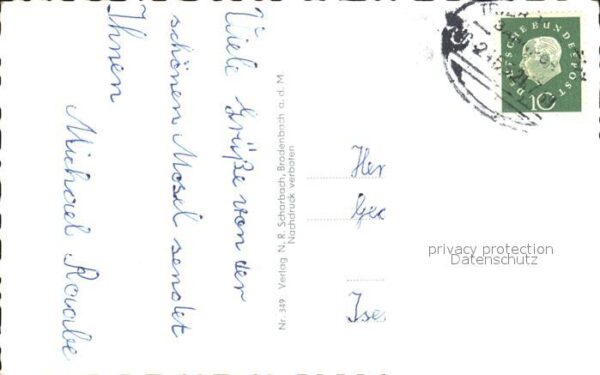 Viele Grüße von der
schönen Mosel sendet
Ihnen
Michael Raabe
Nr. 349 Verlag N. R. Scharbach, Brodenbach a. d. M.
Nachdruck verboten
Her
Ise
DEUTSCHE BUNDESPOST
10
privacy protection
Datenschutz